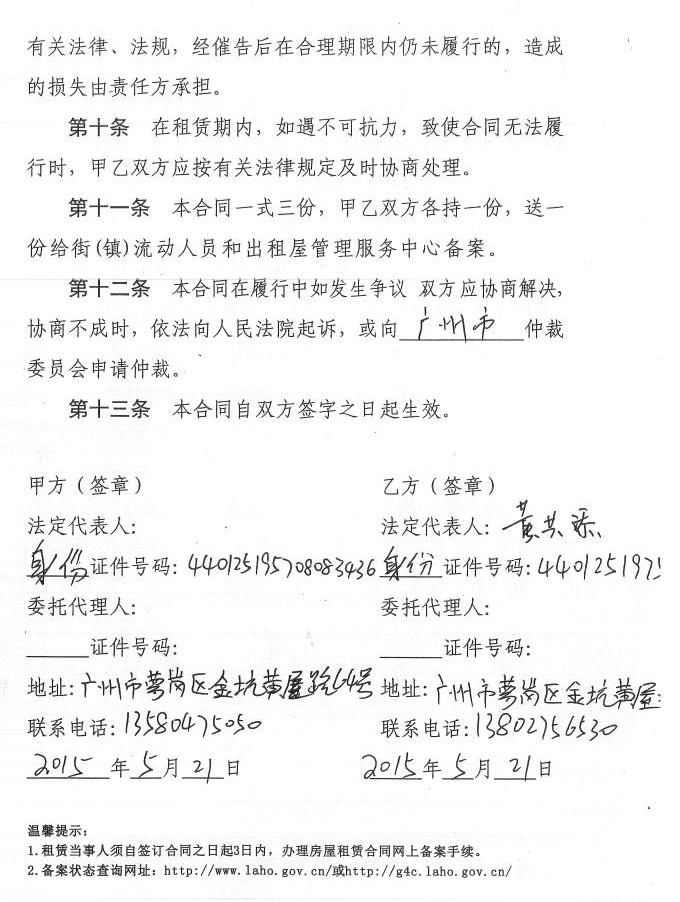 有关法律、法规，经催告后在合理期限内仍未履行的，造成
的损失由责任方承担。
第十条 在租赁期内，如遇不可抗力，致使合同无法履
行时，甲乙双方应按有关法律规定及时协商处理。
第十一条 本合同一式三份，甲乙双方各持一份，送一
份给街(镇)流动人员和出租屋管理服务中心备案。
第十二条 本合同在履行中如发生争议 双方应协商解决，
协商不成时，依法向人民法院起诉，或向 广州市 仲裁
委员会申请仲裁。
第十三条 本合同自双方签字之日起生效。
甲方（签章） 乙方（签章）
法定代表人： 法定代表人：黄共添
身份证件号码：440125195708083436 身份证件号码：4401251975
委托代理人： 委托代理人：
______证件号码： ______证件号码：
地址：广州市萝岗区金坑黄屋路64号 地址：广州市萝岗区金坑黄屋
联系电话：13580475050 联系电话：13802756530
2015年5月21日 2015年5月21日
温馨提示：
1.租赁当事人须自签订合同之日起3日内，办理房屋租赁合同网上备案手续。
2.备案状态查询网址：http://www.laho.gov.cn/或http://g4c.laho.gov.cn/